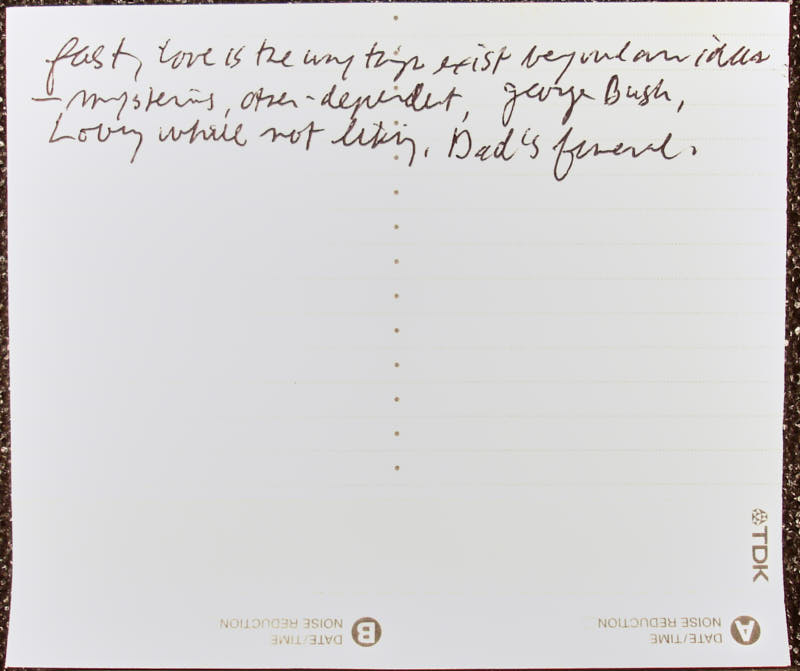 fast, Love is the way things exist beyond our ideas
– mysterious, other-dependent, George Bush,
Loving while not liking, Dad's funeral.
TDK
B DATE/TIME
NOISE REDUCTION
A DATE/TIME
NOISE REDUCTION